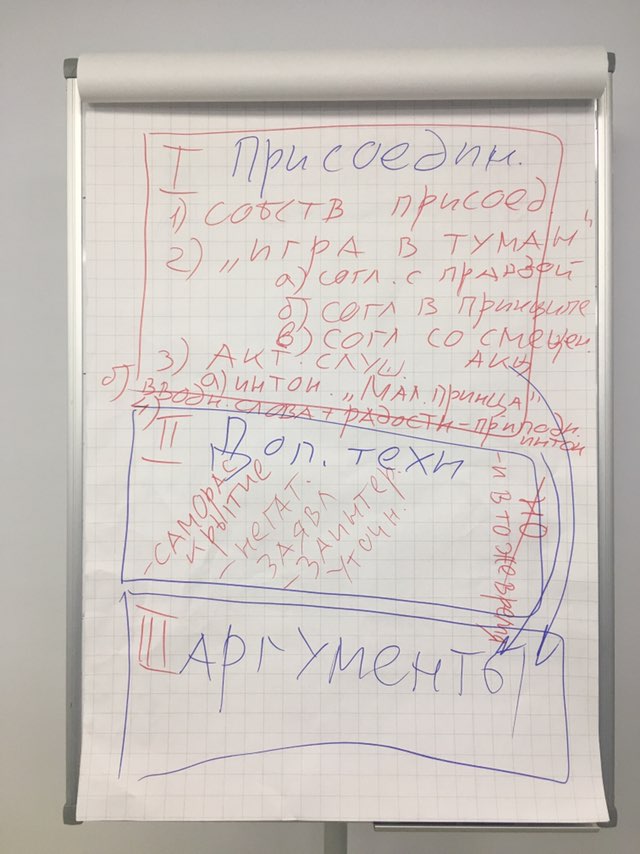 I Присоедин.
1) собств присоед
2) „игра в туман"
а) согл. с правдой
б) согл в принципе
в) согл со смещен.
акц
3) Акт. слуш.
а) интон. „Мал. принца"
б) вводн. слова + радости – приподн.
интон
4)
II Доп. техн
- саморас
крытие
- негат.
заявл
- заинтер.
уточн.
- но
- и в то же время
III Аргументы